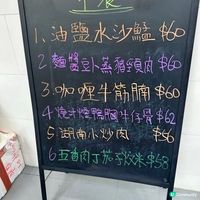 午餐
1、油鹽水沙鯭 $60
2、麵醬豆卜蒸豬頸肉 $60
3、咖喱牛筋腩 $60
$62
5、湖南小炒肉 $56
6、五香肉丁茄子炆米 $58